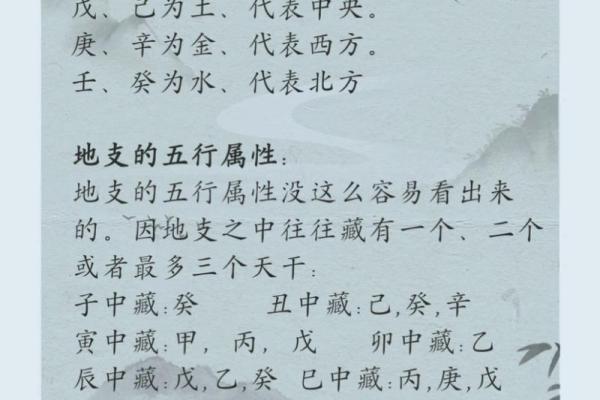 戊、己为土、代表中央。
庚、辛为金、代表西方。
壬、癸为水、代表北方
地支的五行属性:
地支的五行属性没这么容易看出来
的。因地支之中往往藏有一个、二个
或者最多三个天干:
子中藏:癸 丑中藏:己,癸,辛
寅中藏:甲, 丙, 戊 卯中藏:乙
辰中藏:戊,乙,癸 巳中藏:丙,庚,戊